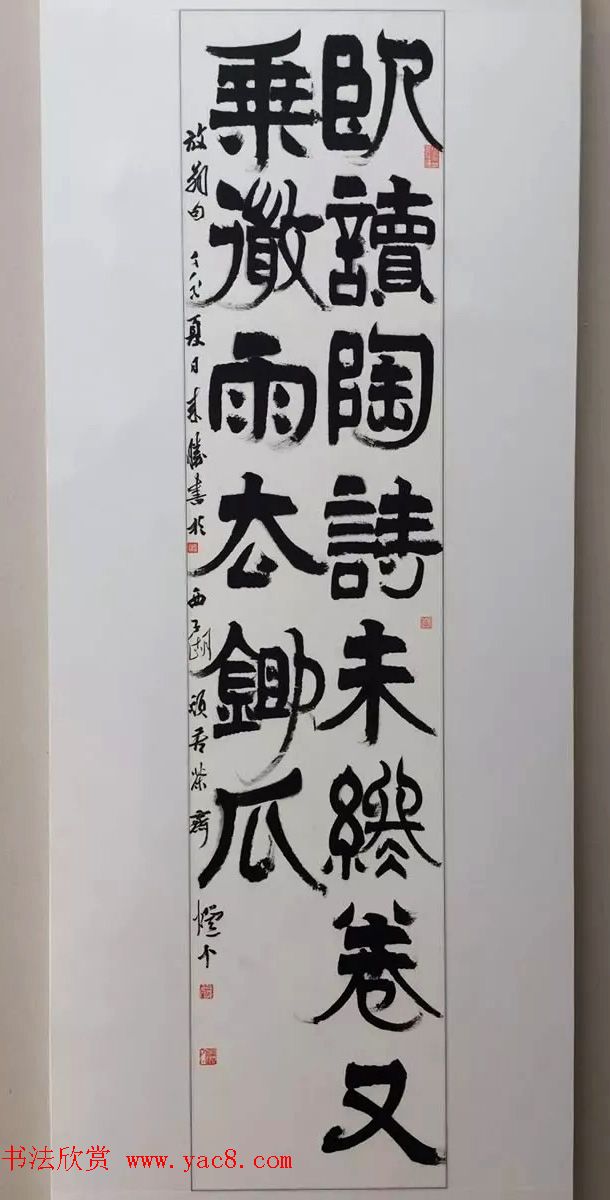 臥讀陶詩未終卷又
乘微雨去鋤瓜
放翁句 夏日 書於西子湖 齋燈下
书法欣赏 www.yac8.com